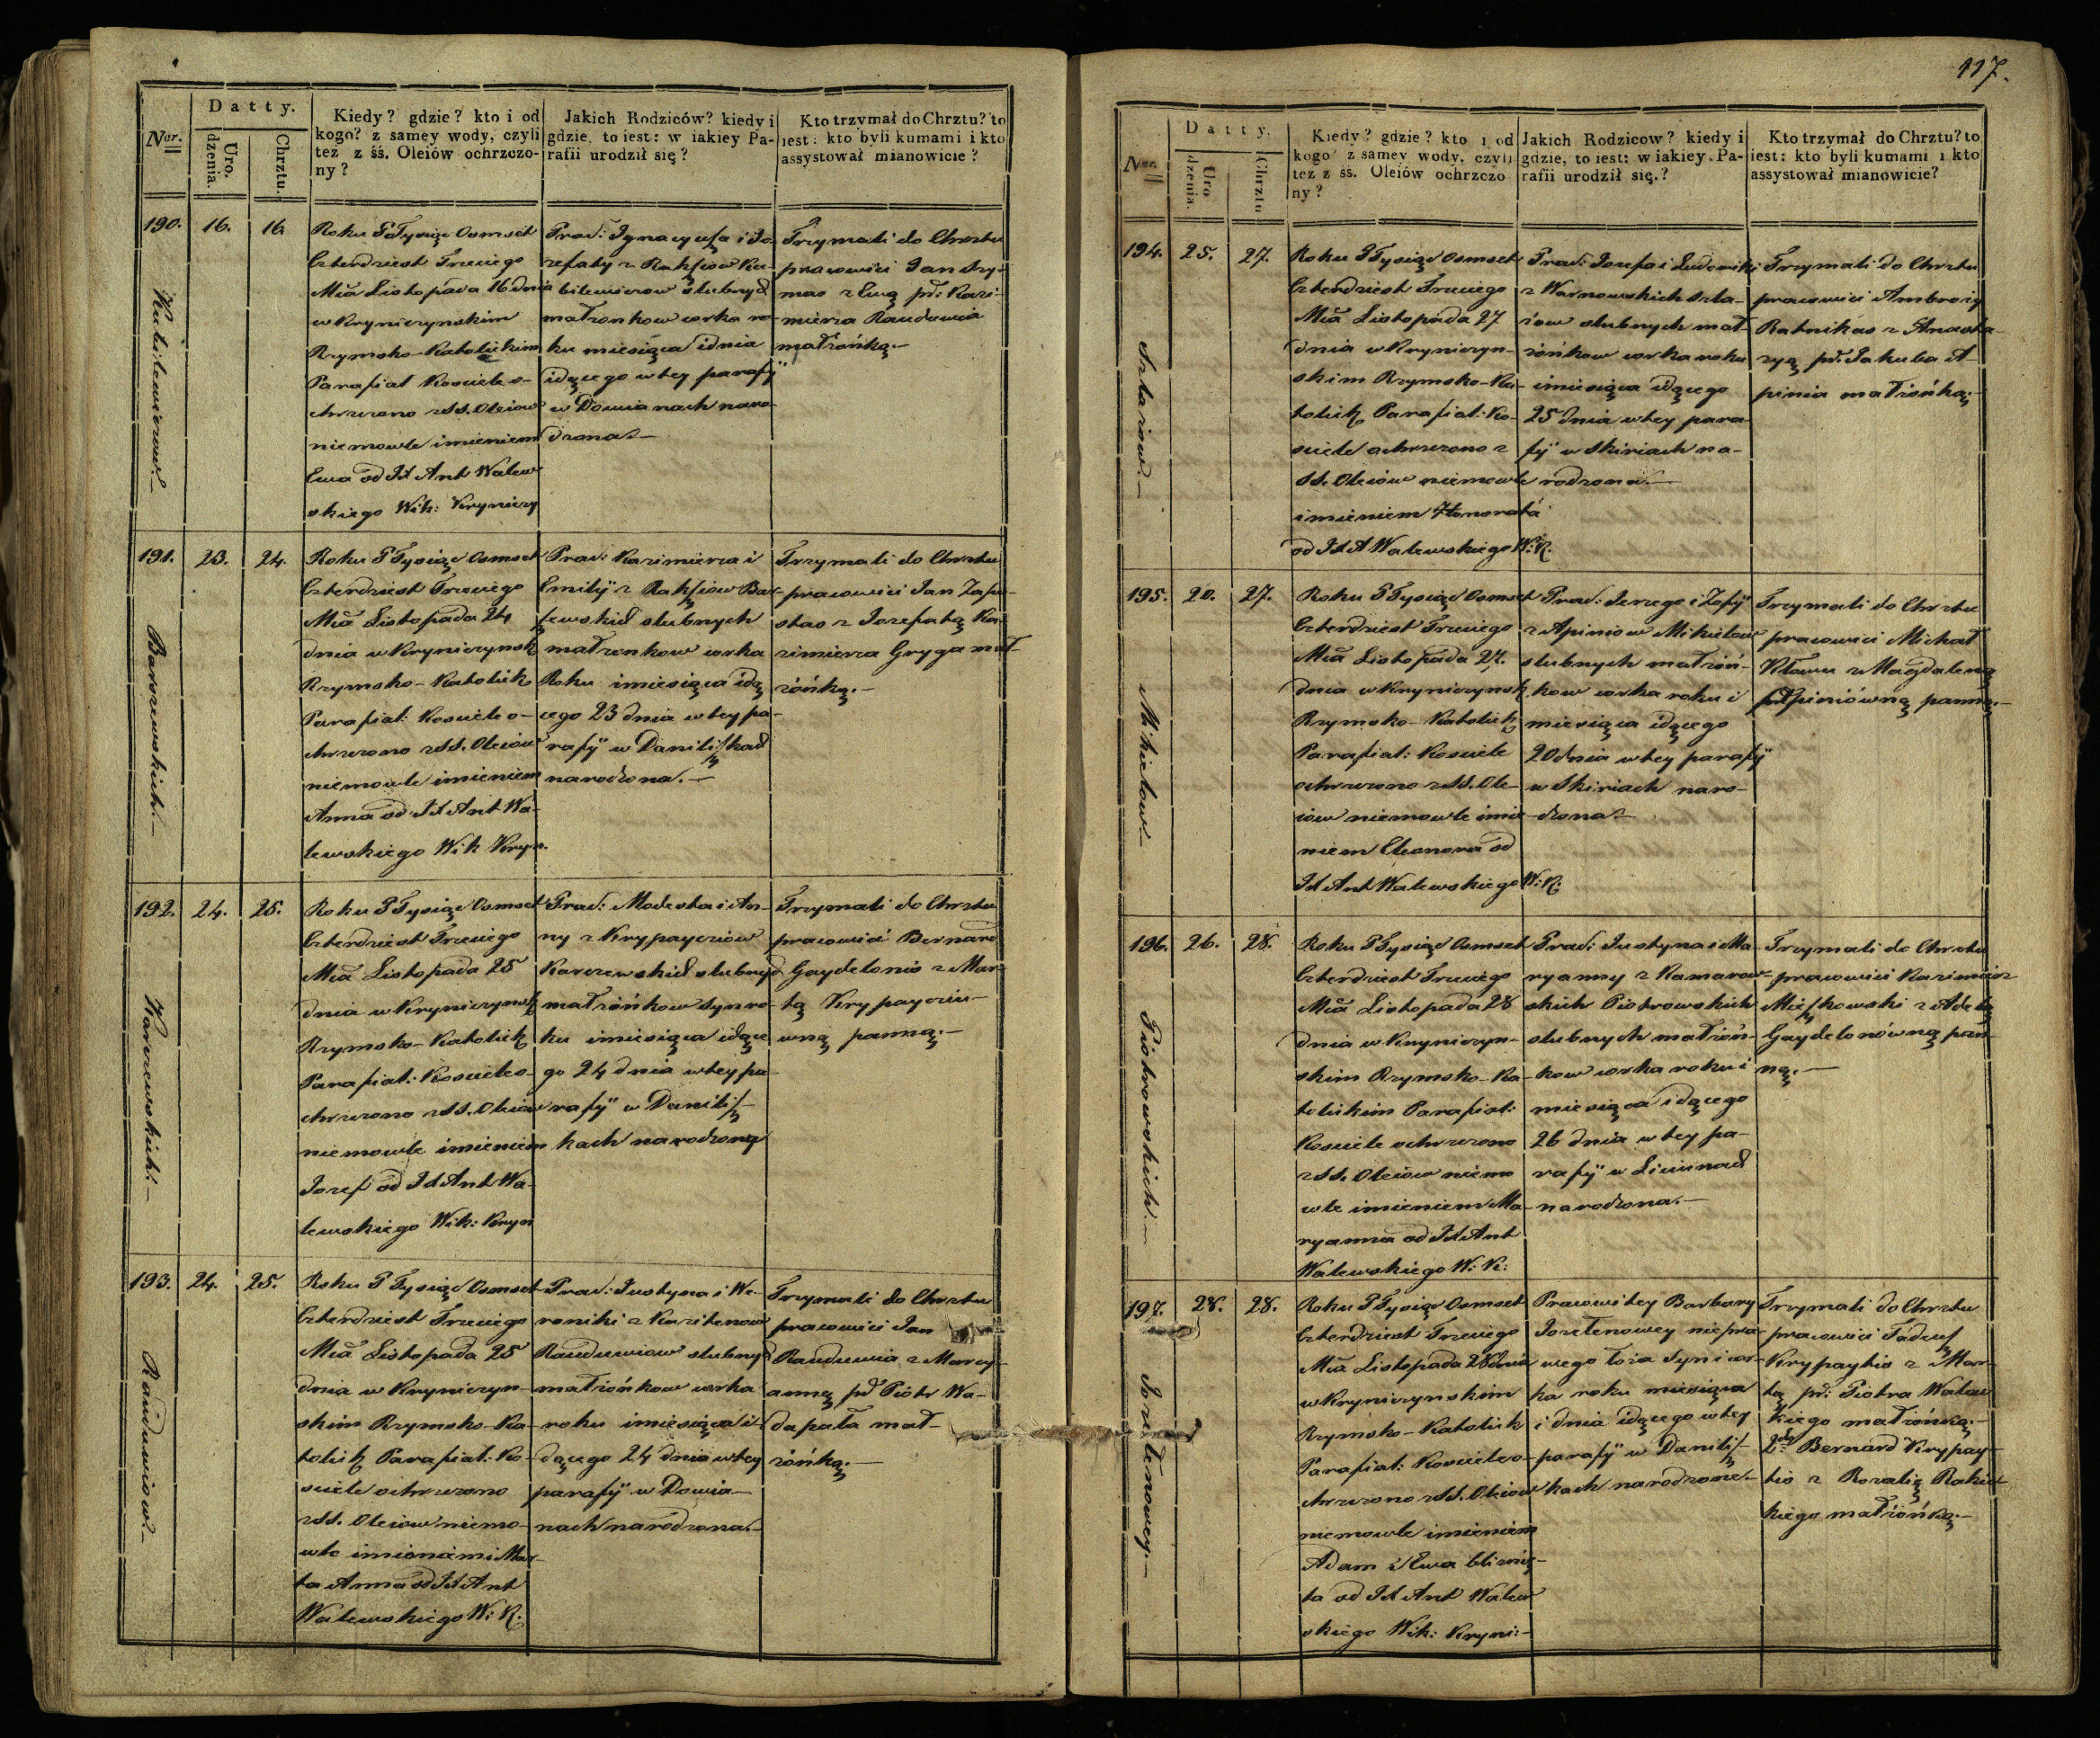 Datty.
Ner.
Uro.
dzenia.
Chrztu.
Kiedy? gdzie? kto i od
kogo? z samey wody, czyli
tez z śś. Oleiów ochrzczo-
ny?
Jakich Rodziców? kiedy i
gdzie, to iest: w iakiey Pa-
rafii urodził się?
Kto trzymał do Chrztu? to
iest: kto byli kumami i kto
assystował mianowicie?
190.
16.
16
Kubilewiczow.
Roku P Tysiąc Osmset
Czterdziest Trzeciego
Mca Listopada 16 dnia
w Kryniczynskim
Rzymsko-Katolickim
Parafial Kosciele o-
chrzczono z SS. Oleiow
niemowle imieniem
Ewa od JX Ant Walew
skiego Wik: Kryniczy
Prac: Ignacyusza i Jo
zefaty z Rakszow Ku-
bilewiczow slubnych
małzonkow corka ro-
ku miesiąca i dnia
idącego w tey parafÿ
w Dowianach naro-
dzona.—
Trzymali do Chrztu
pracowici Jan Szy-
mas z Ewą pd: Kazi-
mierza Rauduwia
małżonką.—
191.
23.
24.
Barszewskich.—
Roku P Tysiąc Osmset
Czterdziest Trzeciego
Mca Listopada 24
dnia w Krynicznysk
Rzymsko-Katolick
Parafial: Kosciele o-
chrzczono z SS. Oleiow
niemowle imieniem
Anna od JX Ant Wa-
lewskiego Wik Kryn.
Prac: Kazimierza i
Emilÿ z Rakszow Bar-
szewskich slubnych
małzonkow corka
Roku i miesiąca idą
cego 23 dnia w tey pa-
rafÿ w Daniliszkach
narodzona.—
Trzymali do Chrztu
pracowici Jan Zapa-
stas z Jozefatą Ka-
zimierza Gryga mał-
żonką.—
192.
24.
25.
Karczewskich.—
Roku P Tysiąc Osmset
Czterdziest Trzeciego
Mca Listopada 25
dnia w Kryniczynsk
Rzymsko-Katolick
Parafial: Kosciele o-
chrzczono z SS. Oleiow
niemowle imieniem
Jozef od JX Ant Wa-
lewskiego Wik: Kryn
Prac: Modesta i An-
ny z Krypayciow
Karczewskich slubnych
małżonkow syn ro-
ku i miesiąca idące
go 24 dnia w tey pa-
rafÿ w Danilisz-
kach narodzony
Trzymali do Chrztu
pracowici Bernard
Gaydelonis z Mar-
tą Krypayciu-
wną panną.—
193.
24.
25.
Rauduwiow.—
Roku P Tysiąc Osmset
Czterdziest Trzeciego
Mca Listopada 25
dnia w Kryniczyn-
skim Rzymsko-Ka-
tolick Parafial: Ko-
sciele ochrzczono
z SS. Oleiow niemo-
wle imionami Mar-
ta Anna od JX Ant
Walewskiego W: K:
Prac: Justyna i We-
roniki z Kuzitenow
Rauduwiow slubnych
małżonkow corka
roku i miesiąca i-
dącego 24 dnia w tey
parafÿ w Dowia-
nach narodzona.—
Trzymali do Chrztu
pracowici Jan
Rauduwia z Mary-
anną pd Piotr Wa-
dapała mał-
żonką.—
117.
Datty.
Ner.
Uro
dzenia.
Chrztu
Kiedy? gdzie? kto i od
kogo? z samey wody, czyli
tez z śś. Oleiów ochrzczo
ny?
Jakich Rodzicow? kiedy i
gdzie, to iest: w iakiey Pa-
rafii urodził się.?
Kto trzymał do Chrztu? to
iest: kto byli kumami i kto
assystował mianowicie?
194.
25.
27.
Szlaziow.—
Roku P Tysiąc Osmset
Czterdziest Trzeciego
Mca Listopada 27
dnia w Kryniczyn-
skim Rzymsko-Ka-
tolick Parafial: Ko-
sciele ochrzczono z
SS. Oleiow niemowle
imieniem Honorata
od JX A Walewskiego W: K:
Prac: Jozefa i Ludowiki
z Warnowskich Szla-
ziow slubnych mał-
żonkow corka roku
i miesiąca idącego
25 dnia w tey para
fÿ w Skiriach na-
rodzona.—
Trzymali do Chrztu
pracowici Ambrozy
Ratnikas z Anasta-
zyą pd. Jakuba A-
pinia małżonką.—
195.
20.
27.
Mikielow.—
Roku P Tysiąc Osmset
Czterdziest Trzeciego
Mca Listopada 27.
dnia w Kryniczynsk
Rzymsko-Katolick
Parafial: Kosciele
ochrzczono z SS. Ole-
iow niemowle imie-
niem Eleonora od
JX Ant Walewskiego W: K:
Prac: Jerzego i Zofÿ
z Apiniow Mikielow
slubnych małżon-
kow corka roku i
miesiąca idącego
20 dnia w tey parafÿ
w Skiriach naro-
dzona.—
Trzymali do Chrztu
pracowici Michał
z Magdaleną
Apiniówną panną.—
196.
26.
28.
Piotrowskich.—
Roku P Tysiąc Osmset
Czterdziest Trzeciego
Mca Listopada 28
dnia w Kryniczyn-
skim Rzymsko-Ka-
tolickim Parafial:
Kosciele ochrzczono
z SS. Oleiow niemo
wle imieniem Ma-
ryanna od JX Ant
Walewskiego W: K:
Prac: Justyna i Ma-
ryanny z Kamarow-
skich Piotrowskich
slubnych małżon-
kow corka roku i
miesiąca idącego
26 dnia w tey pa-
rafÿ w Liciunach
narodzona.—
Trzymali do Chrztu
pracowici Kazimierz
Miszkowski z Adelą
Gaydelonówną pan-
ną.—
197.
28.
28.
Jozetenowey.—
Roku P Tysiąc Osmset
Czterdziest Trzeciego
Mca Listopada 28 dnia
w Kryniczynskim
Rzymsko-Katolick
Parafial: Kosciele o-
chrzczono z SS. Oleiow
niemowle imieniem
Adam i Ewa bliznię-
ta od JX Ant Walew
skiego Wik: Kryni:—
Pracowitey Barbary
Jozetenowey niepra-
wego łoża syn i cor-
ka roku miesiąca
i dnia idącego w tey
parafÿ w Danilisz-
kach narodzone.—
Trzymali do Chrztu
pracowici Tadeusz
Krypaytis z Mar-
tą pd: Piotra Watow
kiego małżonką.—
2. Bernard Krypay-
tis z Rozalią Rakic-
kiego małżonką.—